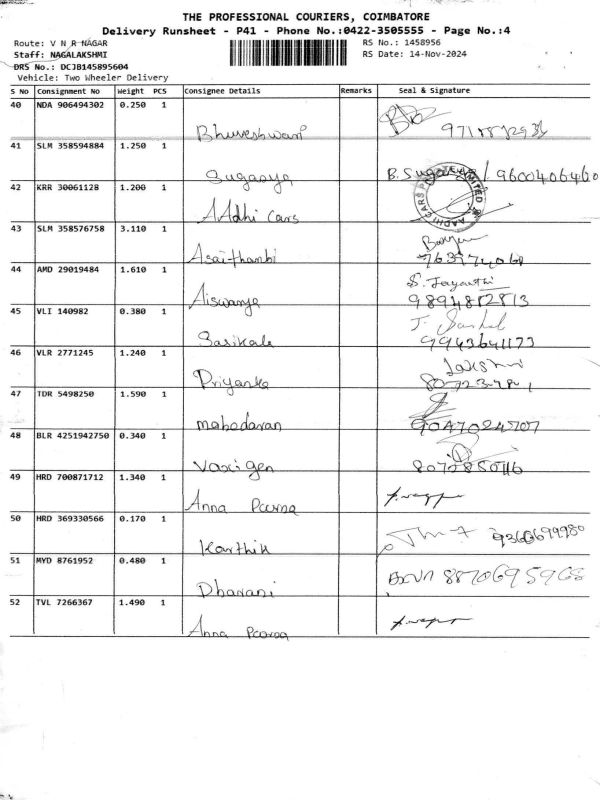 THE PROFESSIONAL COURIERS, COIMBATORE
Delivery Runsheet - P41 - Phone No.:0422-3505555 - Page No.:4
Route: V N R NAGAR RS No.: 1458956
Staff: NAGALAKSHMI RS Date: 14-Nov-2024
DRS No.: DCJB145895604
Vehicle: Two Wheeler Delivery
S No Consignment No Weight PCS Consignee Details Remarks Seal & Signature
40 NDA 906494302 0.250 1
Bhuveshwari
41 SLM 358594884 1.250 1
Sugasya B. 9600406460
42 KRR 30061128 1.200 1
AAdhi Cars AADHI CARS
43 SLM 358576758 3.110 1
Asaithambi
44 AMD 29019484 1.610 1 S. Jayanthi
Aiswarya 9894812813
45 VLI 140982 0.380 1
Sasikala 9943641173
46 VLR 2771245 1.240 1 Lakshmi
Priyanka
47 TDR 5498250 1.590 1
mahadavan
48 BLR 4251942750 0.340 1
49 HRD 700871712 1.340 1
Anna Poorna
50 HRD 369330566 0.170 1
Karthik
51 MYD 8761952 0.480 1 8870695968
Dharani
52 TVL 7266367 1.490 1
Anna Poorna